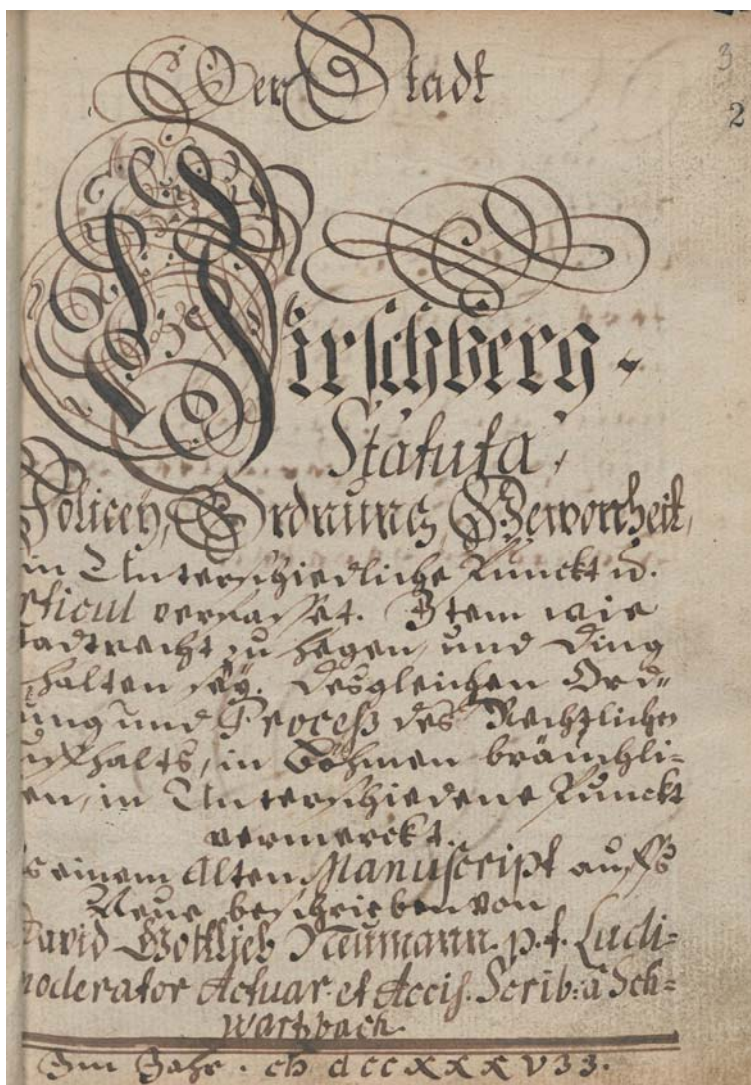 3
2
Der Stadt
Hirschberg
Statuta,
Policey, Ordnung Gewonheit,
in Unterschiedliche Punckt u.
rticul verfasset. Item wie
tadtrecht zu hegen, und Ding
halten seÿ. Desgleichen Ord-
ung und Proceß des Rechtlichen
in Böhmen bräuchli-
en, in Unterschiedene Punckt
vermerckt.
s einem Alten Manuscript auffs
Neue beschrieben von
David Gottlieb Neumann. p.t. Ludi-
moderator Actuar. et Accis. Scrib: â Sch-
wartzbach.
Im Jahr.